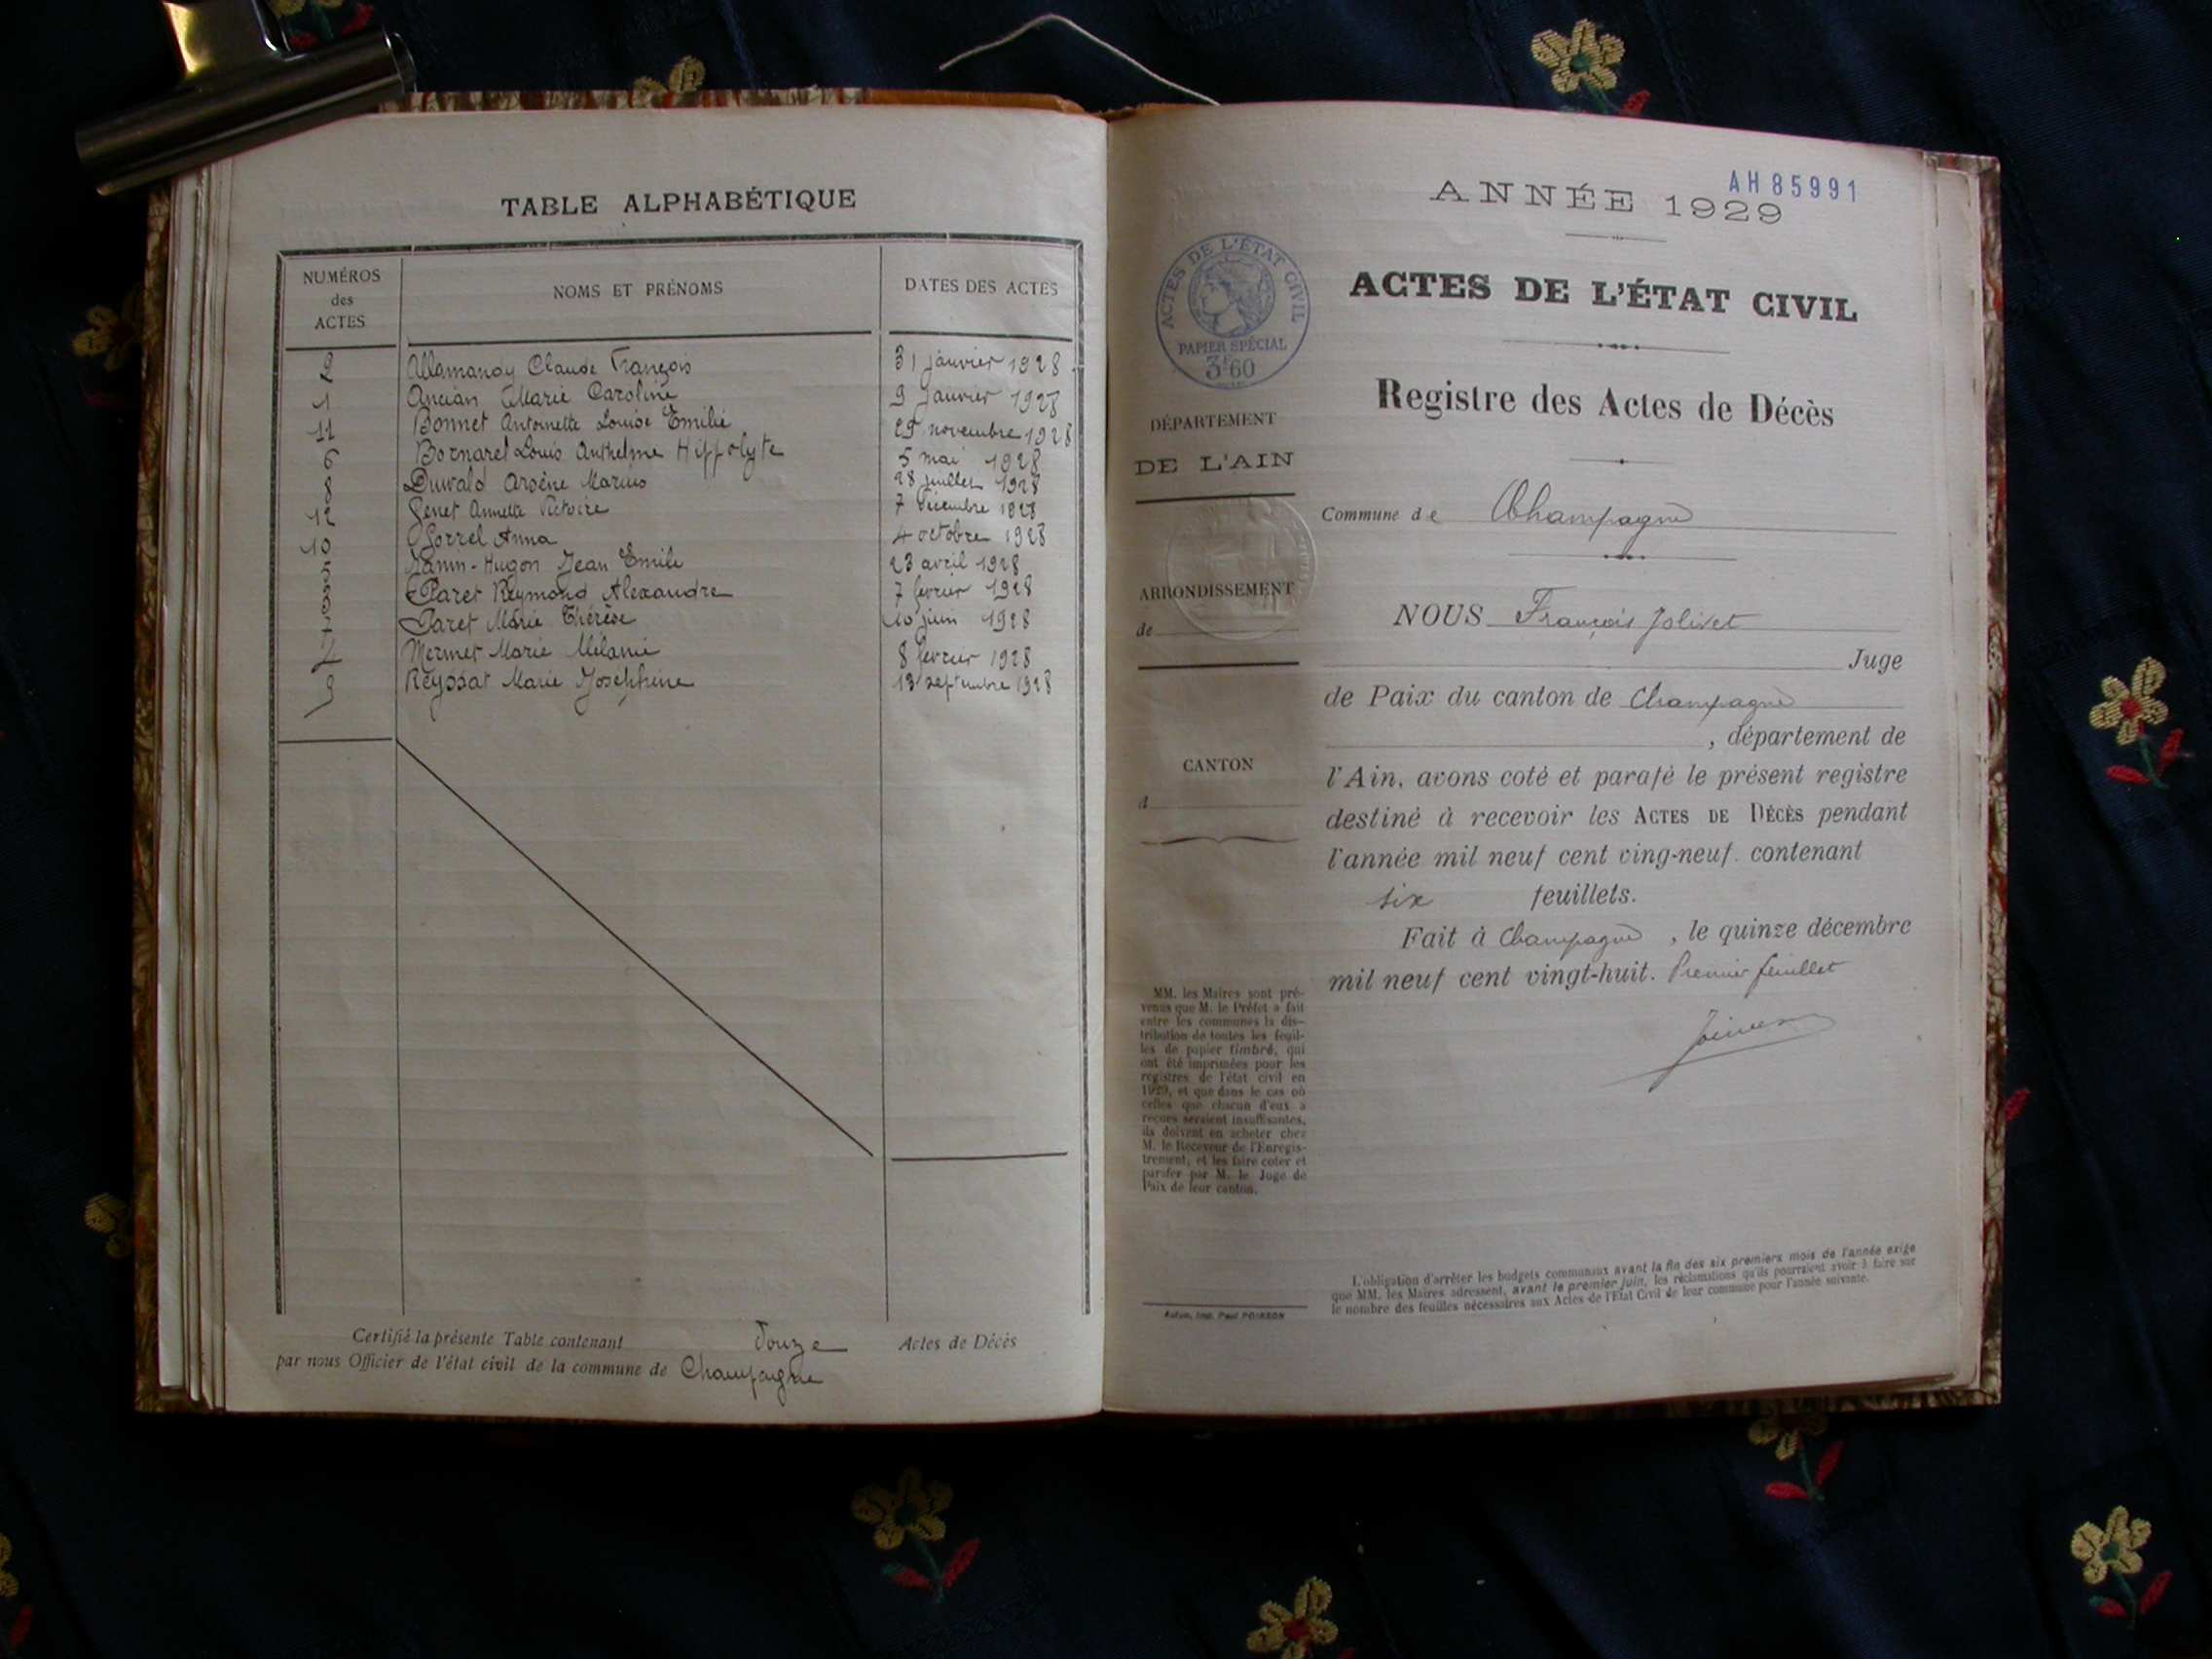 TABLE ALPHABÉTIQUE
NUMÉROS des ACTES NOMS ET PRÉNOMS DATES DES ACTES
2 Allamanoy Claude François 31 janvier 1928
1 Ancian Marie Caroline 9 janvier 1928
11 Bonnet Antoinette Louise Emilie 29 novembre 1928
6 Bornarel Louis Anthelme Hippolyte 5 mai 1928
8 Duwald Arsène Marius 28 juillet 1928
12 Genet Annette Victoire 7 décembre 1928
10 Gorrel Anna 4 octobre 1928
5 Janin-Hugon Jean Emile 23 avril 1928
3 Paret Reymond Alexandre 7 février 1928
7 Paret Marie Thérèse 10 juin 1928
4 Mermet Marie Mélanie 8 février 1928
9 Reyssat Marie Joséphine 13 septembre 1928
Certifié la présente Table contenant Douze Actes de Décès
par nous Officier de l'état civil de la commune de Champagne
AH 85991
ANNÉE 1929
ACTES DE L'ÉTAT CIVIL
PAPIER SPÉCIAL
3F60
ACTES DE L'ÉTAT CIVIL
Registre des Actes de Décès
DÉPARTEMENT
DE L'AIN
Commune de Champagne
ARRONDISSEMENT
de
NOUS François Jolivet
Juge
de Paix du canton de Champagne
, département de
CANTON
d
l'Ain, avons coté et parafé le présent registre
destiné à recevoir les ACTES DE DÉCÈS pendant
l'année mil neuf cent ving-neuf. contenant
six feuillets.
Fait à Champagne, le quinze décembre
mil neuf cent vingt-huit. Premier feuillet
MM. les Maires sont pré-
venus que M. le Préfet a fait
entre les communes la dis-
tribution de toutes les feuil-
les de papier timbré, qui
ont été imprimées pour les
registres de l'état civil en
1929, et que dans le cas où
celles que chacun d'eux a
reçues seraient insuffisantes,
ils doivent en acheter chez
M. le Receveur de l'Enregis-
trement, et les faire coter et
parafer par M. le Juge de
Paix de leur canton.
Autun, Imp. Paul POISSON
L'obligation d'arrêter les budgets communaux avant la fin des six premiers mois de l'année exige
que MM. les Maires adressent, avant le premier juin, les réclamations qu'ils pourraient avoir à faire sur
le nombre des feuilles nécessaires aux Actes de l'Etat Civil de leur commune pour l'année suivante.